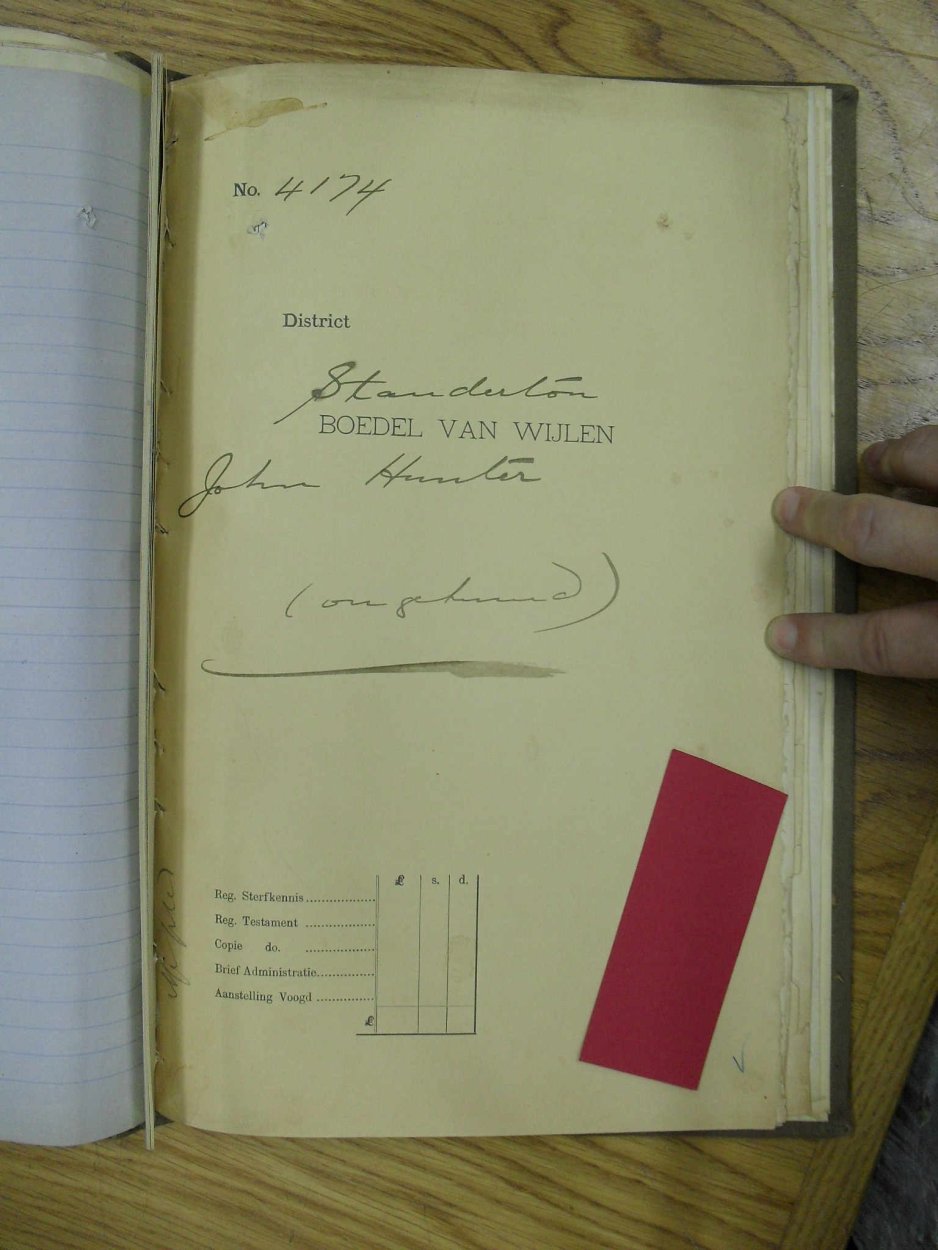 No. 4174
District
Standerton
BOEDEL VAN WIJLEN
John Hunter
(ongehuwd)
£ s. d.
Reg. Sterfkennis
Reg. Testament
Copie do.
Brief Administratie
Aanstelling Voogd
£